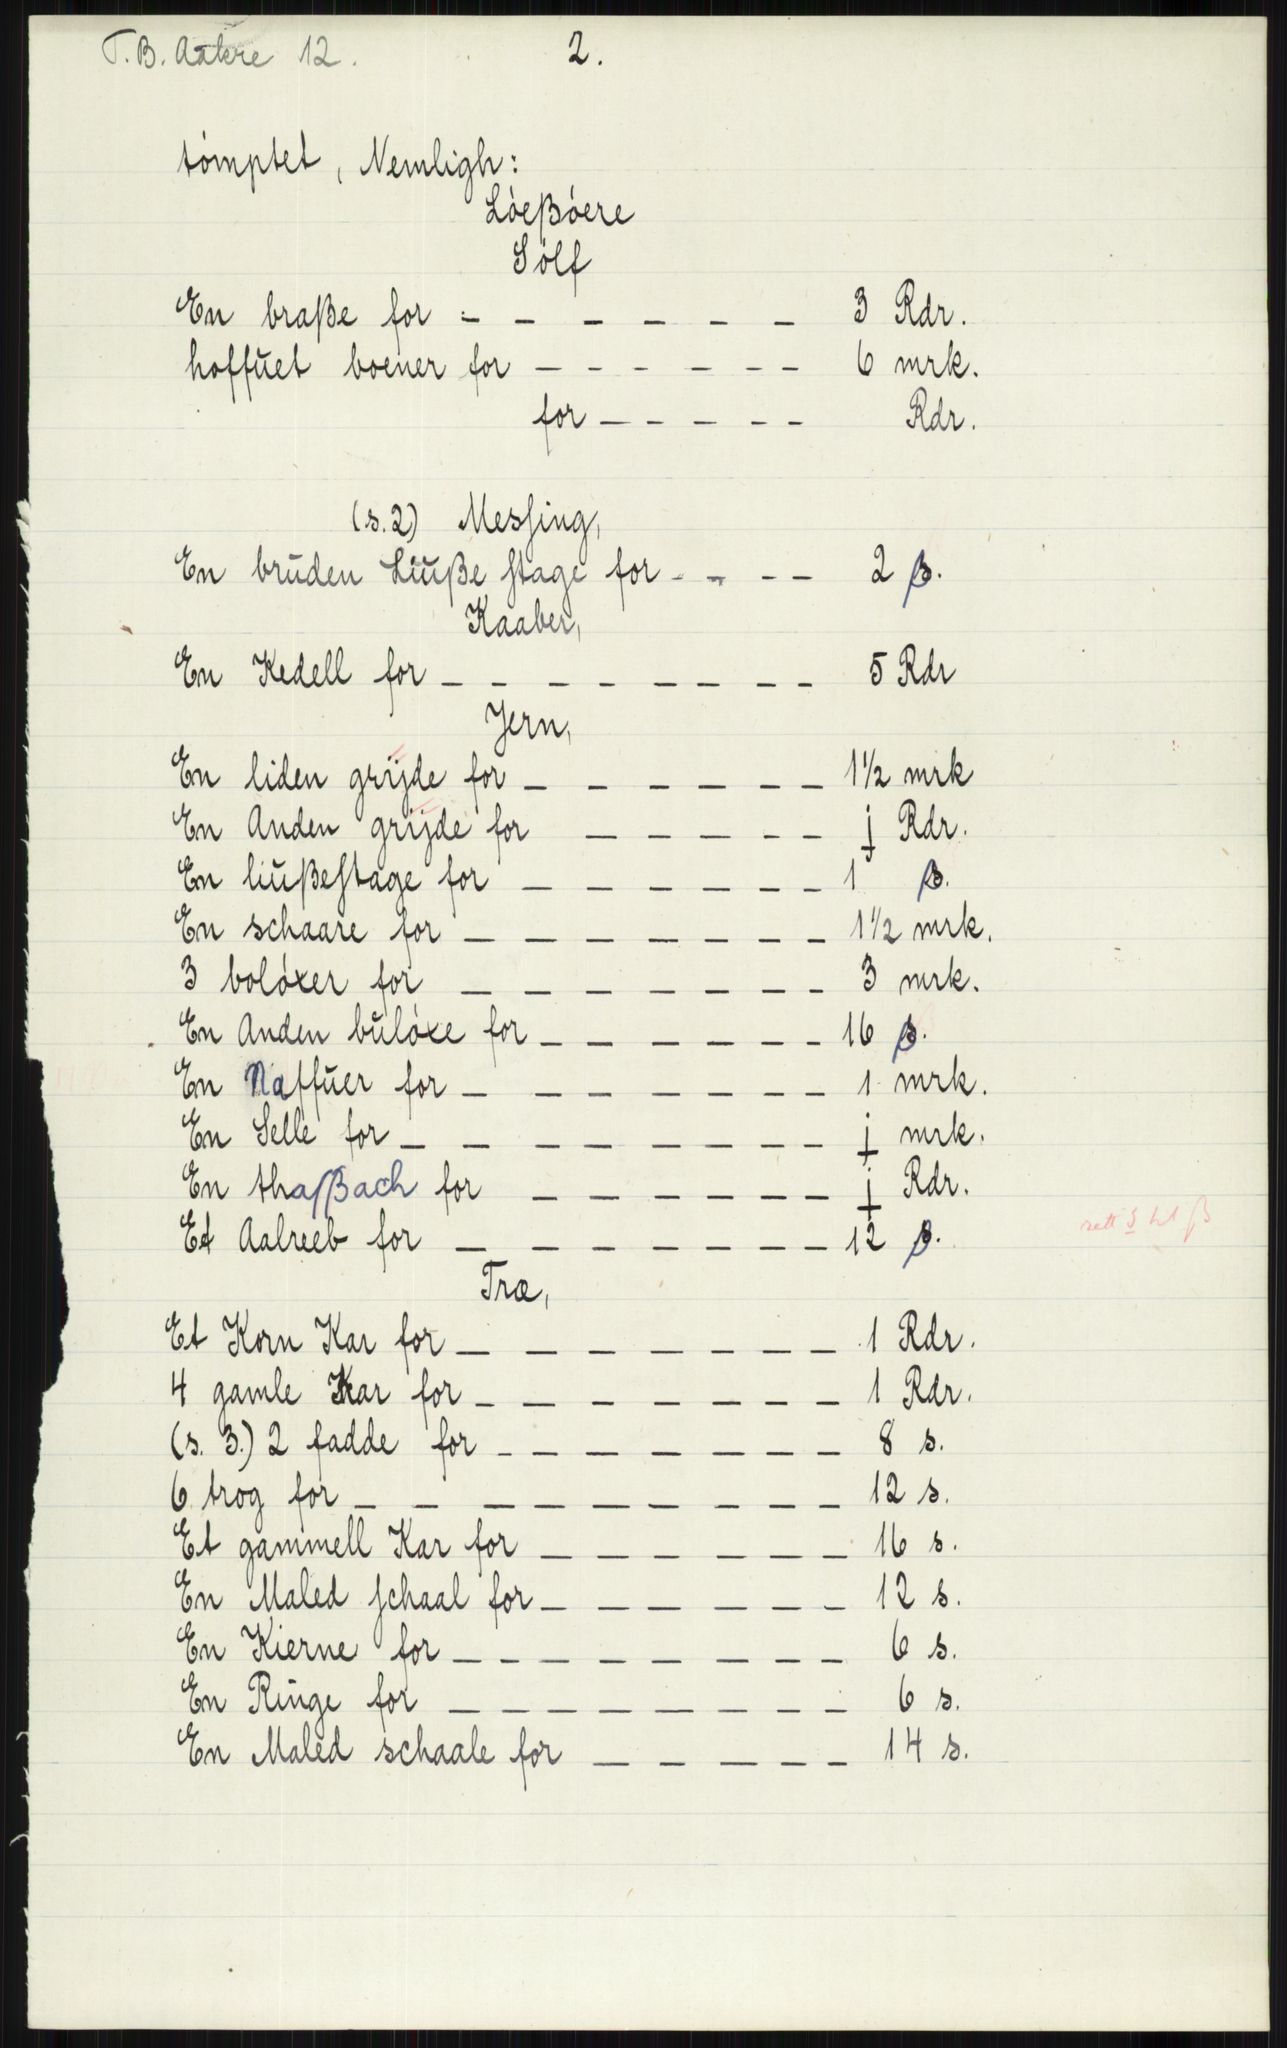 T.B. Aakre 12. 2.
tómptet, Nemligh:
Lóeßóere
Sólf
En braße for - - - - - - - 3 Rdr.
hoffŭet boener for - - - - - - 6 mrk.
for - - - - - Rdr.
(s.2) Messing,
En brŭden Liŭße stage for - - - - 2 ß.
Kaaber,
En Kedell for - - - - - - - - 5 Rdr
Jern,
En liden grijde for - - - - - - 1½ mrk
En Anden grijde for - - - - - j Rdr.
En liŭßestage for - - - - - - 1 ß.
En schaare for - - - - - - - 1½ mrk.
3 bolóxer for - - - - - - - 3 mrk.
En Anden bŭlóxe for - - - - - - 16 ß.
En Naffŭer for - - - - - - - 1 mrk.
En Selle for - - - - - - - - j mrk.
En thaßach for - - - - - - j Rdr.
Et Aalreeb for - - - - - - - 12 ß.
rett s til ß
Træ,
Et Korn Kar for - - - - - - - 1 Rdr.
4 gamle Kar for - - - - - - - 1 Rdr.
(s. 3.) 2 fadde for - - - - - - - 8 s.
6 trog for - - - - - - - - - 12 s.
Et gammell Kar for - - - - - - 16 s.
En Maled schaal for - - - - - - 12 s.
En Kierne for - - - - - - - - - 6 s.
En Ringe for - - - - - - - - - 6 s.
En Maled schaale for - - - - - 14 s.